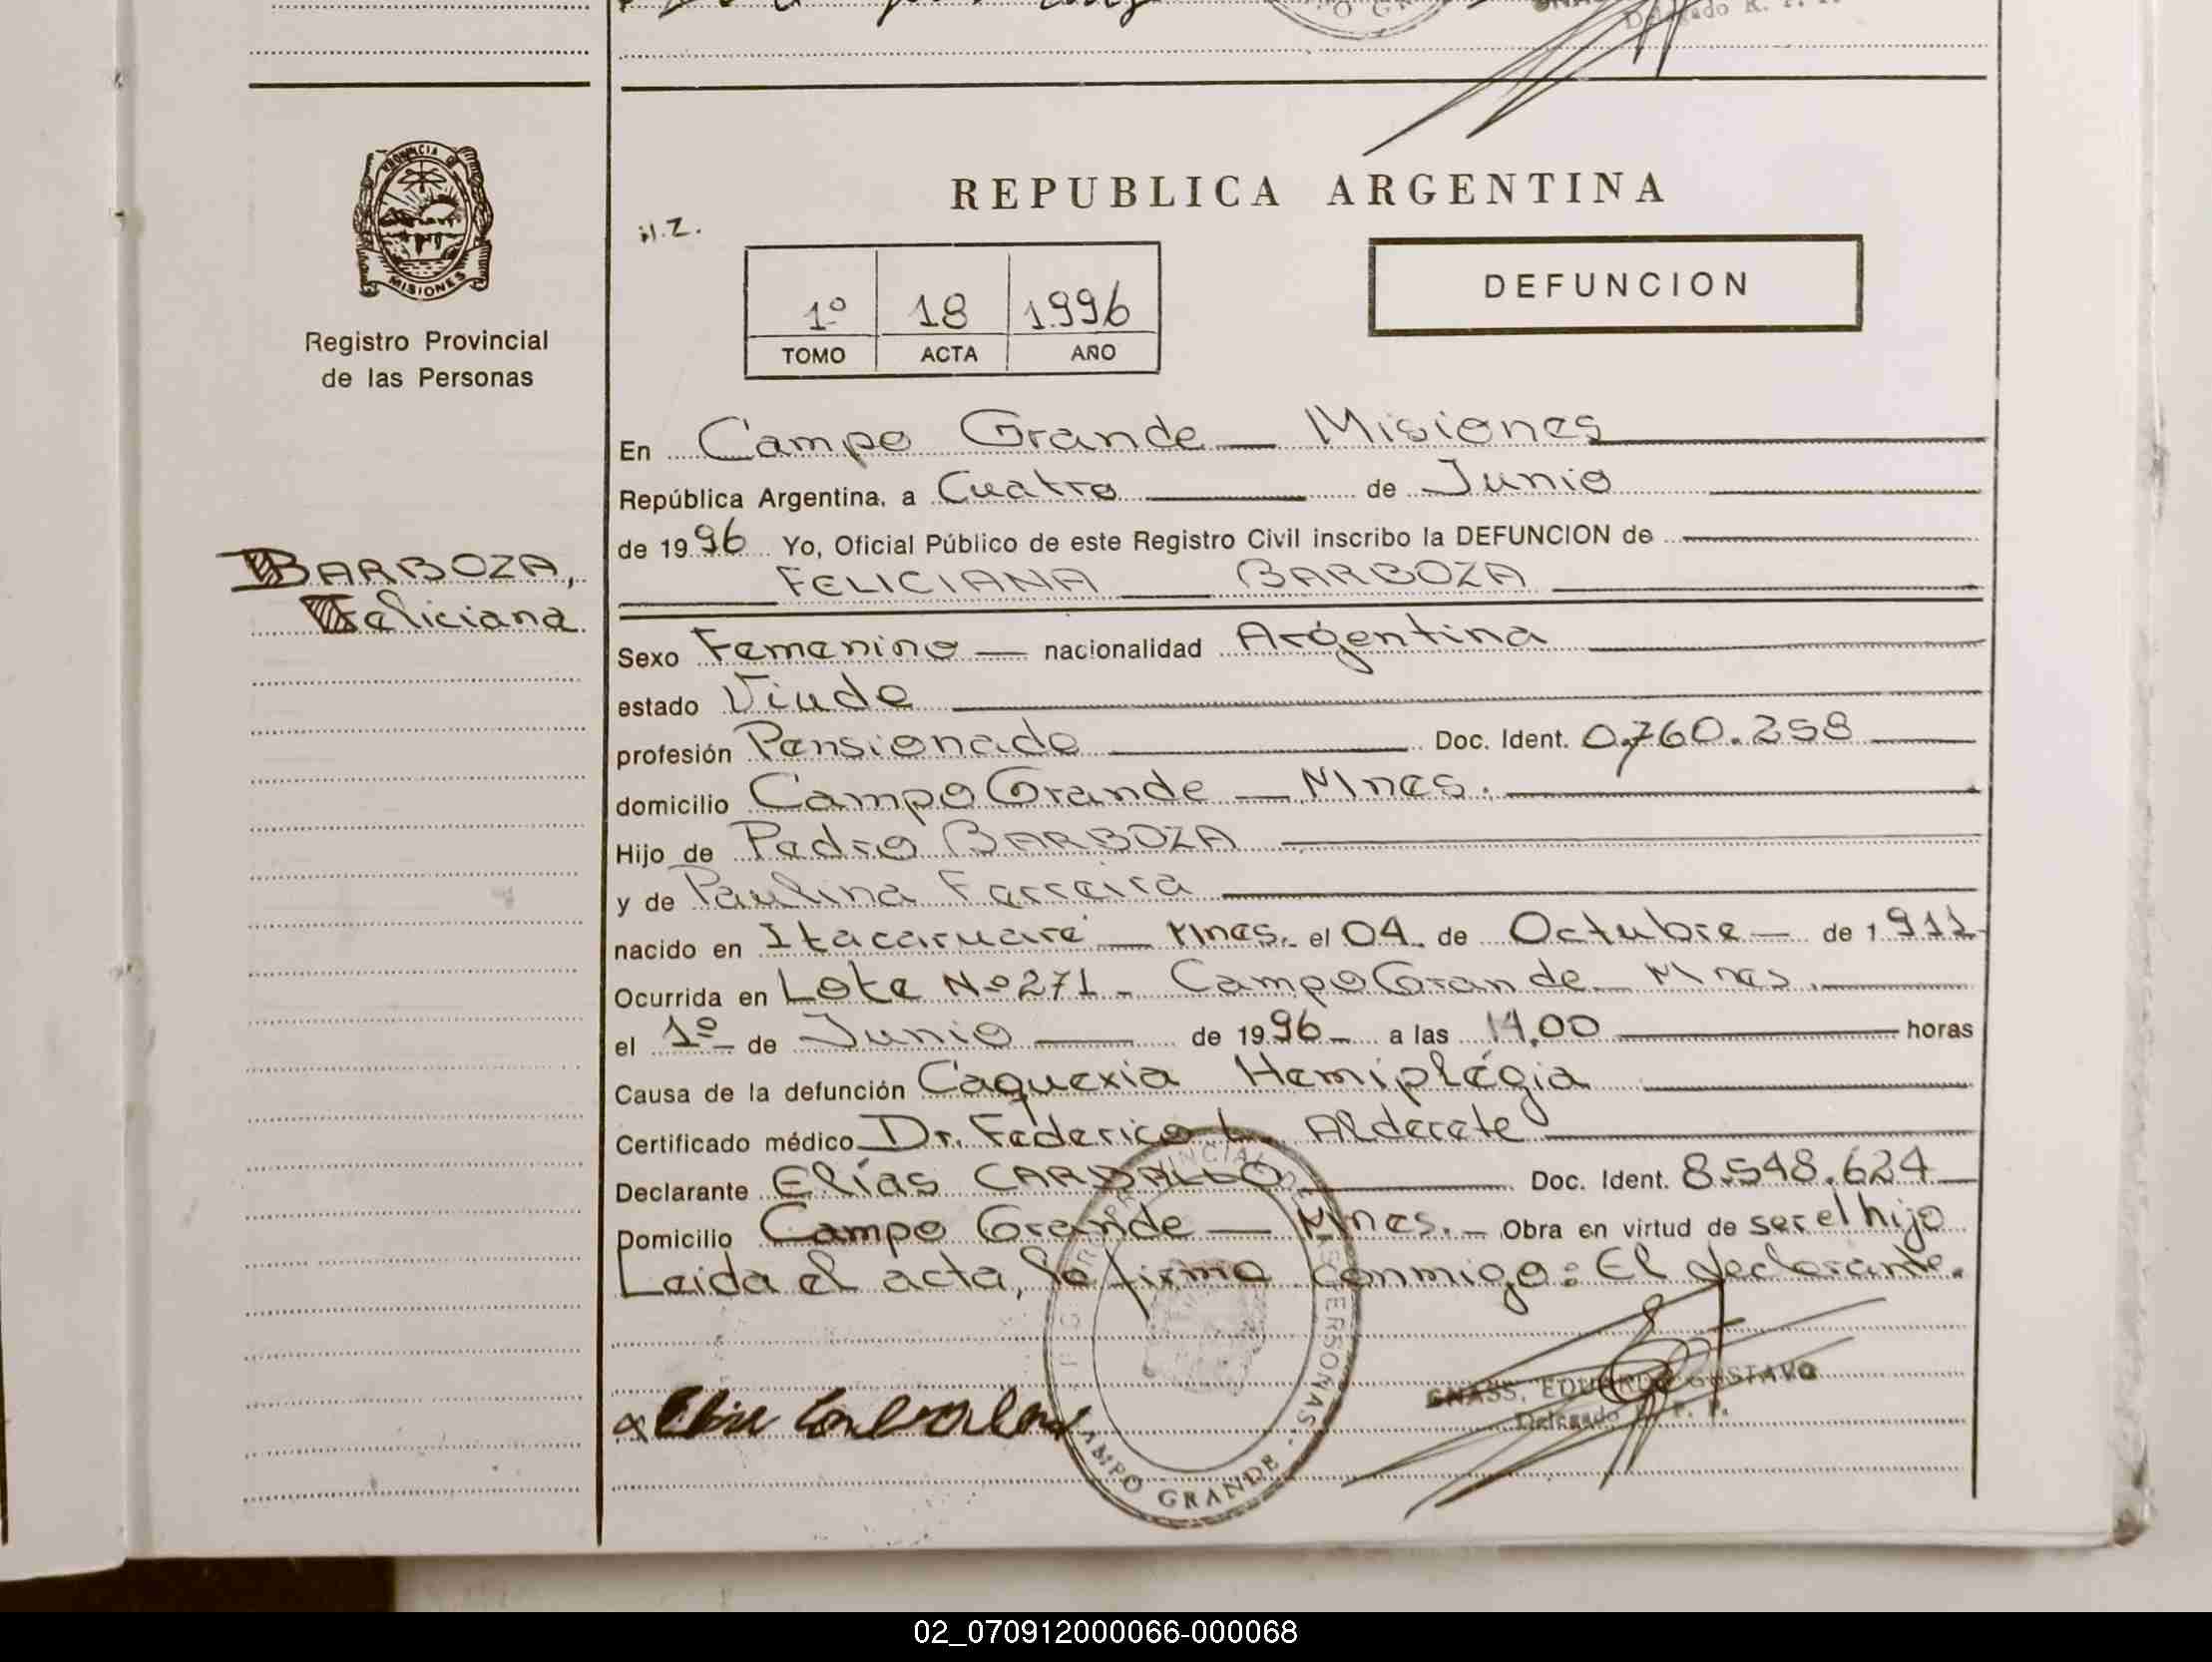 PROVINCIA DE
MISIONES
Registro Provincial
de las Personas
BARBOZA,
Feliciana
REPUBLICA ARGENTINA
1º 18 1996
TOMO ACTA AÑO
DEFUNCION
En Campo Grande — Misiones
República Argentina, a Cuatro de Junio
de 1996 Yo, Oficial Público de este Registro Civil inscribo la DEFUNCION de
FELICIANA BARBOZA
Sexo Femenino — nacionalidad Argentina
estado Viuda
profesión Pensionada Doc. Ident. 0.760.258
domicilio Campo Grande — Mnes.
Hijo de Pedro BARBOZA
y de Paulina Ferreira
nacido en Itacaruaré — Mnes. el 04 de Octubre — de 1911
Ocurrida en Lote Nº 271 - Campo Grande - Mnes.
el 1º de Junio de 1996 a las 14,00 horas
Causa de la defunción Caquexia Hemiplégia
Certificado médico Dr. Federico L. Alderete
Declarante Elías CARBALLO Doc. Ident. 8.548.624
Domicilio Campo Grande — Mnes. — Obra en virtud de ser el hijo
Leida el acta, la firma conmigo: El declarante.
GNASS, EDUARDO GUSTAVO
Delegado R. P. P.
CAMPO GRANDE
02_070912000066-000068